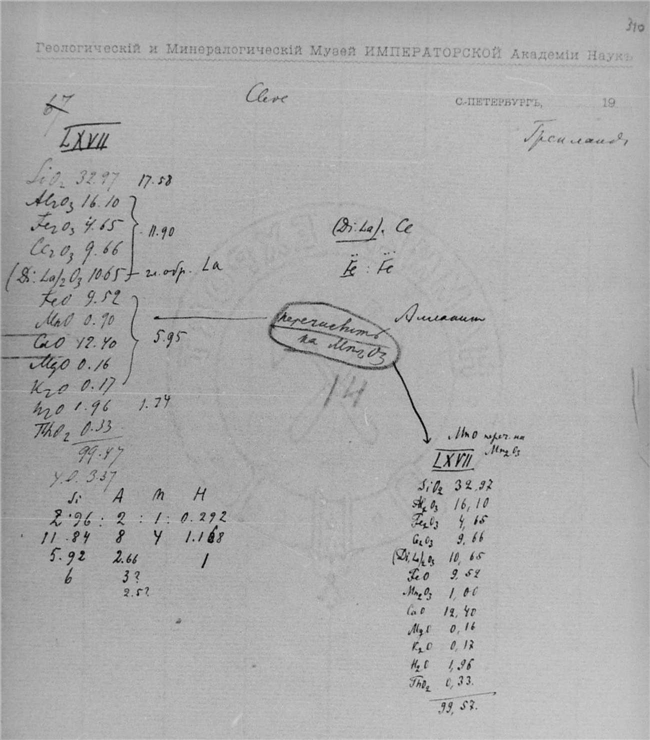 310
Геологическій и Минералогическій Музей ИМПЕРАТОРСКОЙ Академіи Наукъ
67
Cleve
С.-ПЕТЕРБУРГЪ, 19
LXVII
SiO2 32.97 17.58
Al2O3 16.10
Fe2O3 4.65 11.90
Ce2O3 9.66
(Di:La)2O3 10.65 гл. обр. La
FeO 9.52
MnO 0.90
CaO 12.40 5.95
MgO 0.16
K2O 0.17
H2O 1.96 1.74
ThO2 0.33
99.47
3.37
Si A M H
2.96 : 2 : 1 : 0.292
11.84 8 4 1.168
5.92 2.66 1
6 3?
2.5?
(Di:La), Ce
Fe : Fe
Алланит
перечислить
на Mn2O3
14
MnO переч. на
Mn2O3
LXVII
SiO2 32,97
Al2O3 16,10
Fe2O3 4,65
Ce2O3 9,66
(Di,La)2O3 10,65
FeO 9,52
Mn2O3 1,00
CaO 12,40
MgO 0,16
K2O 0,17
H2O 1,96
ThO2 0,33.
99,57.